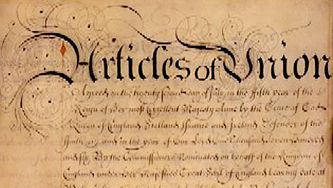 Articles of Union
Agreed on the twenty Second day of July in the fifth year of the
Reign of Her most Excellent Majesty Anne by the Grace of God
Queen of England Scotland France and Ireland Defender of the
Faith and in the year of Our Lord One thousand Seven hundred
and Six By the Commissioners Nominated on behalf of the Kingdom of
England under Her Majesties Great Seal of England bearing date at